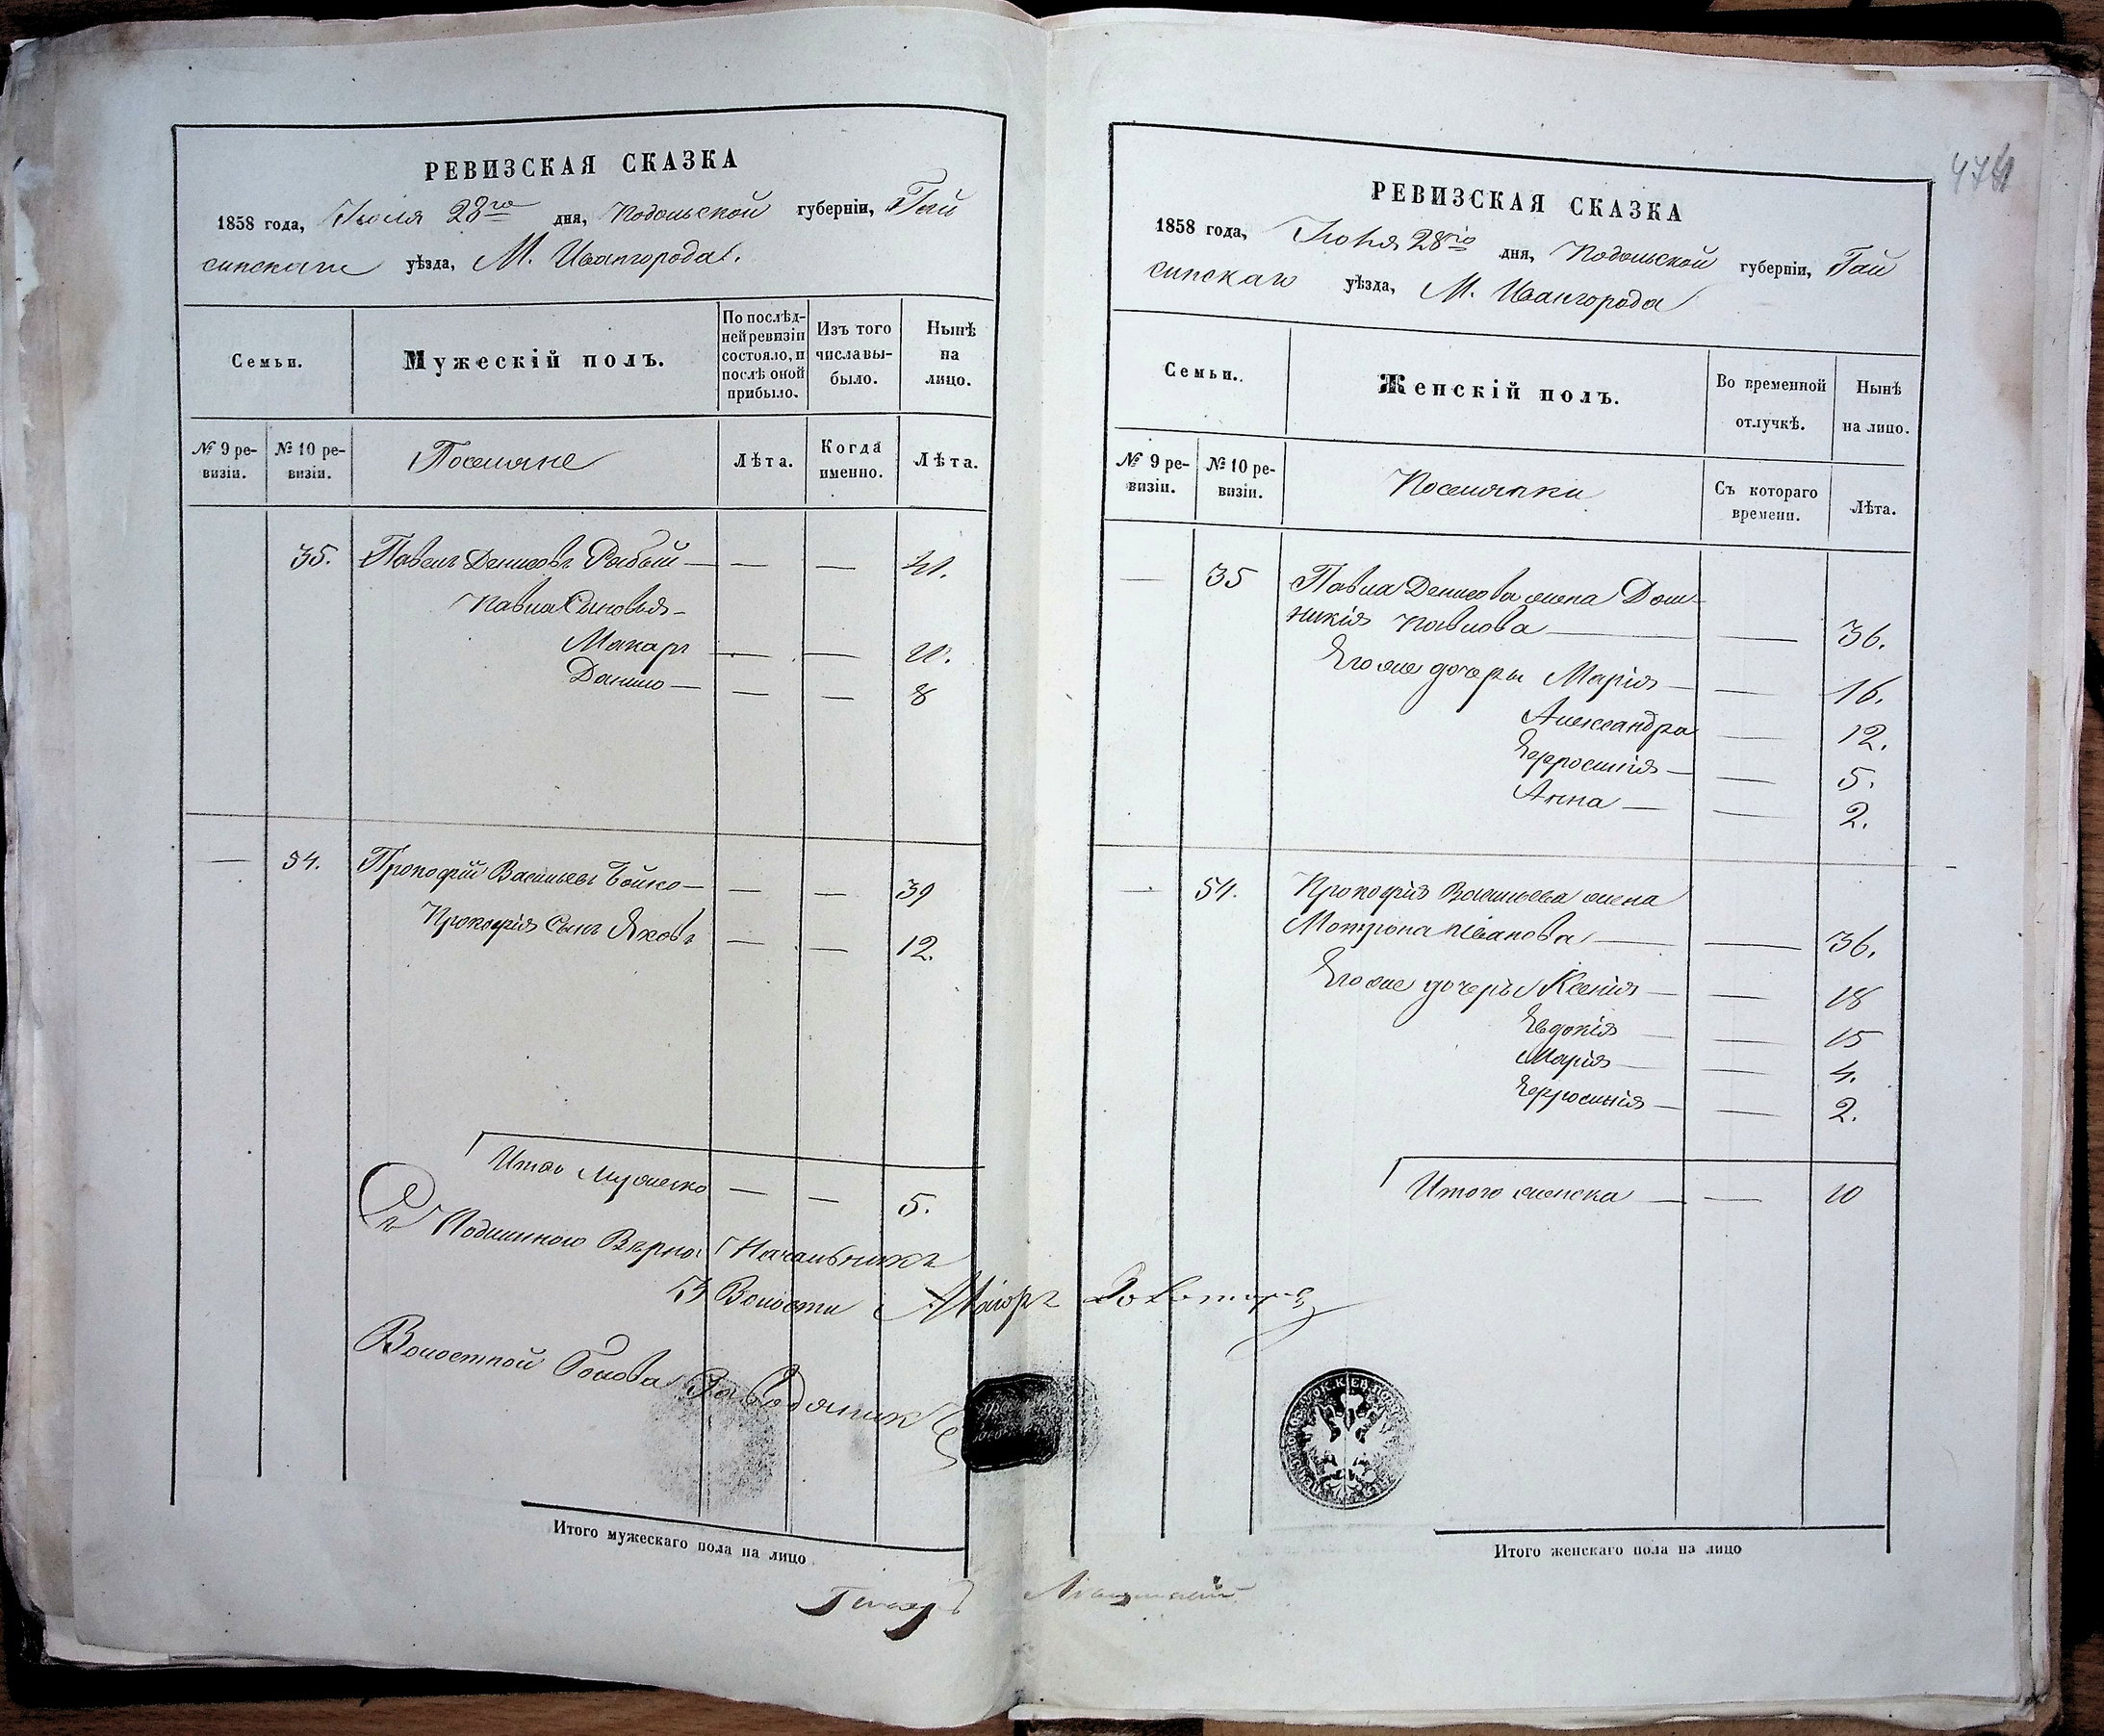 РЕВИЗСКАЯ СКАЗКА
1858 года, Іюля 28го дня, Подольской губерніи, Гай
синскаго уѣзда, М. Ивангорода.
Семьи.
Мужескій полъ.
По послѣд-
ней ревизіи
состояло, и
послѣ оной
прибыло.
Изъ того
числа вы-
было.
Нынѣ
на
лицо.
№ 9 ре-
визіи.
№ 10 ре-
визіи.
Поселяне
Лѣта.
Когда
именно.
Лѣта.
35. Павелъ Денисовъ Рыбый — — — 41.
Павла Сыновья
Макаръ — — 11.
Данило — — — 8
— 54. Прокофій Васильевъ Бойко — — — 39
Прокофія Сынъ Яковъ — — 12.
Итого Мужеска — — 5.
Съ Подлиннымъ Вѣрно: Начальникъ
3 Волости Маіоръ
Волостной Голова
Итого мужескаго пола на лицо
Писарь
474
РЕВИЗСКАЯ СКАЗКА
1858 года, Іюня 28го дня, Подольской губерніи, Гай
синскаго уѣзда, М. Ивангорода
Семьи.
Женскій полъ.
Во временной
отлучкѣ.
Нынѣ
на лицо.
№ 9 ре-
визіи.
№ 10 ре-
визіи.
Поселянки
Съ котораго
времени.
Лѣта.
— 35 Павла Денисова жена Дом-
никія Павлова — — 36.
Его же дочери Марія — — 16.
Александра — 12.
Ефросинія — — 5.
Анна — — 2.
— 54. Прокофія Васильева жена
Мотрона Иванова — — 36.
Его же дочери Ксенія — — 18
Евдокія — — 15
Марія — — 4.
Ефросинія — — 2.
Итого женска — — 10
Итого женскаго пола на лицо